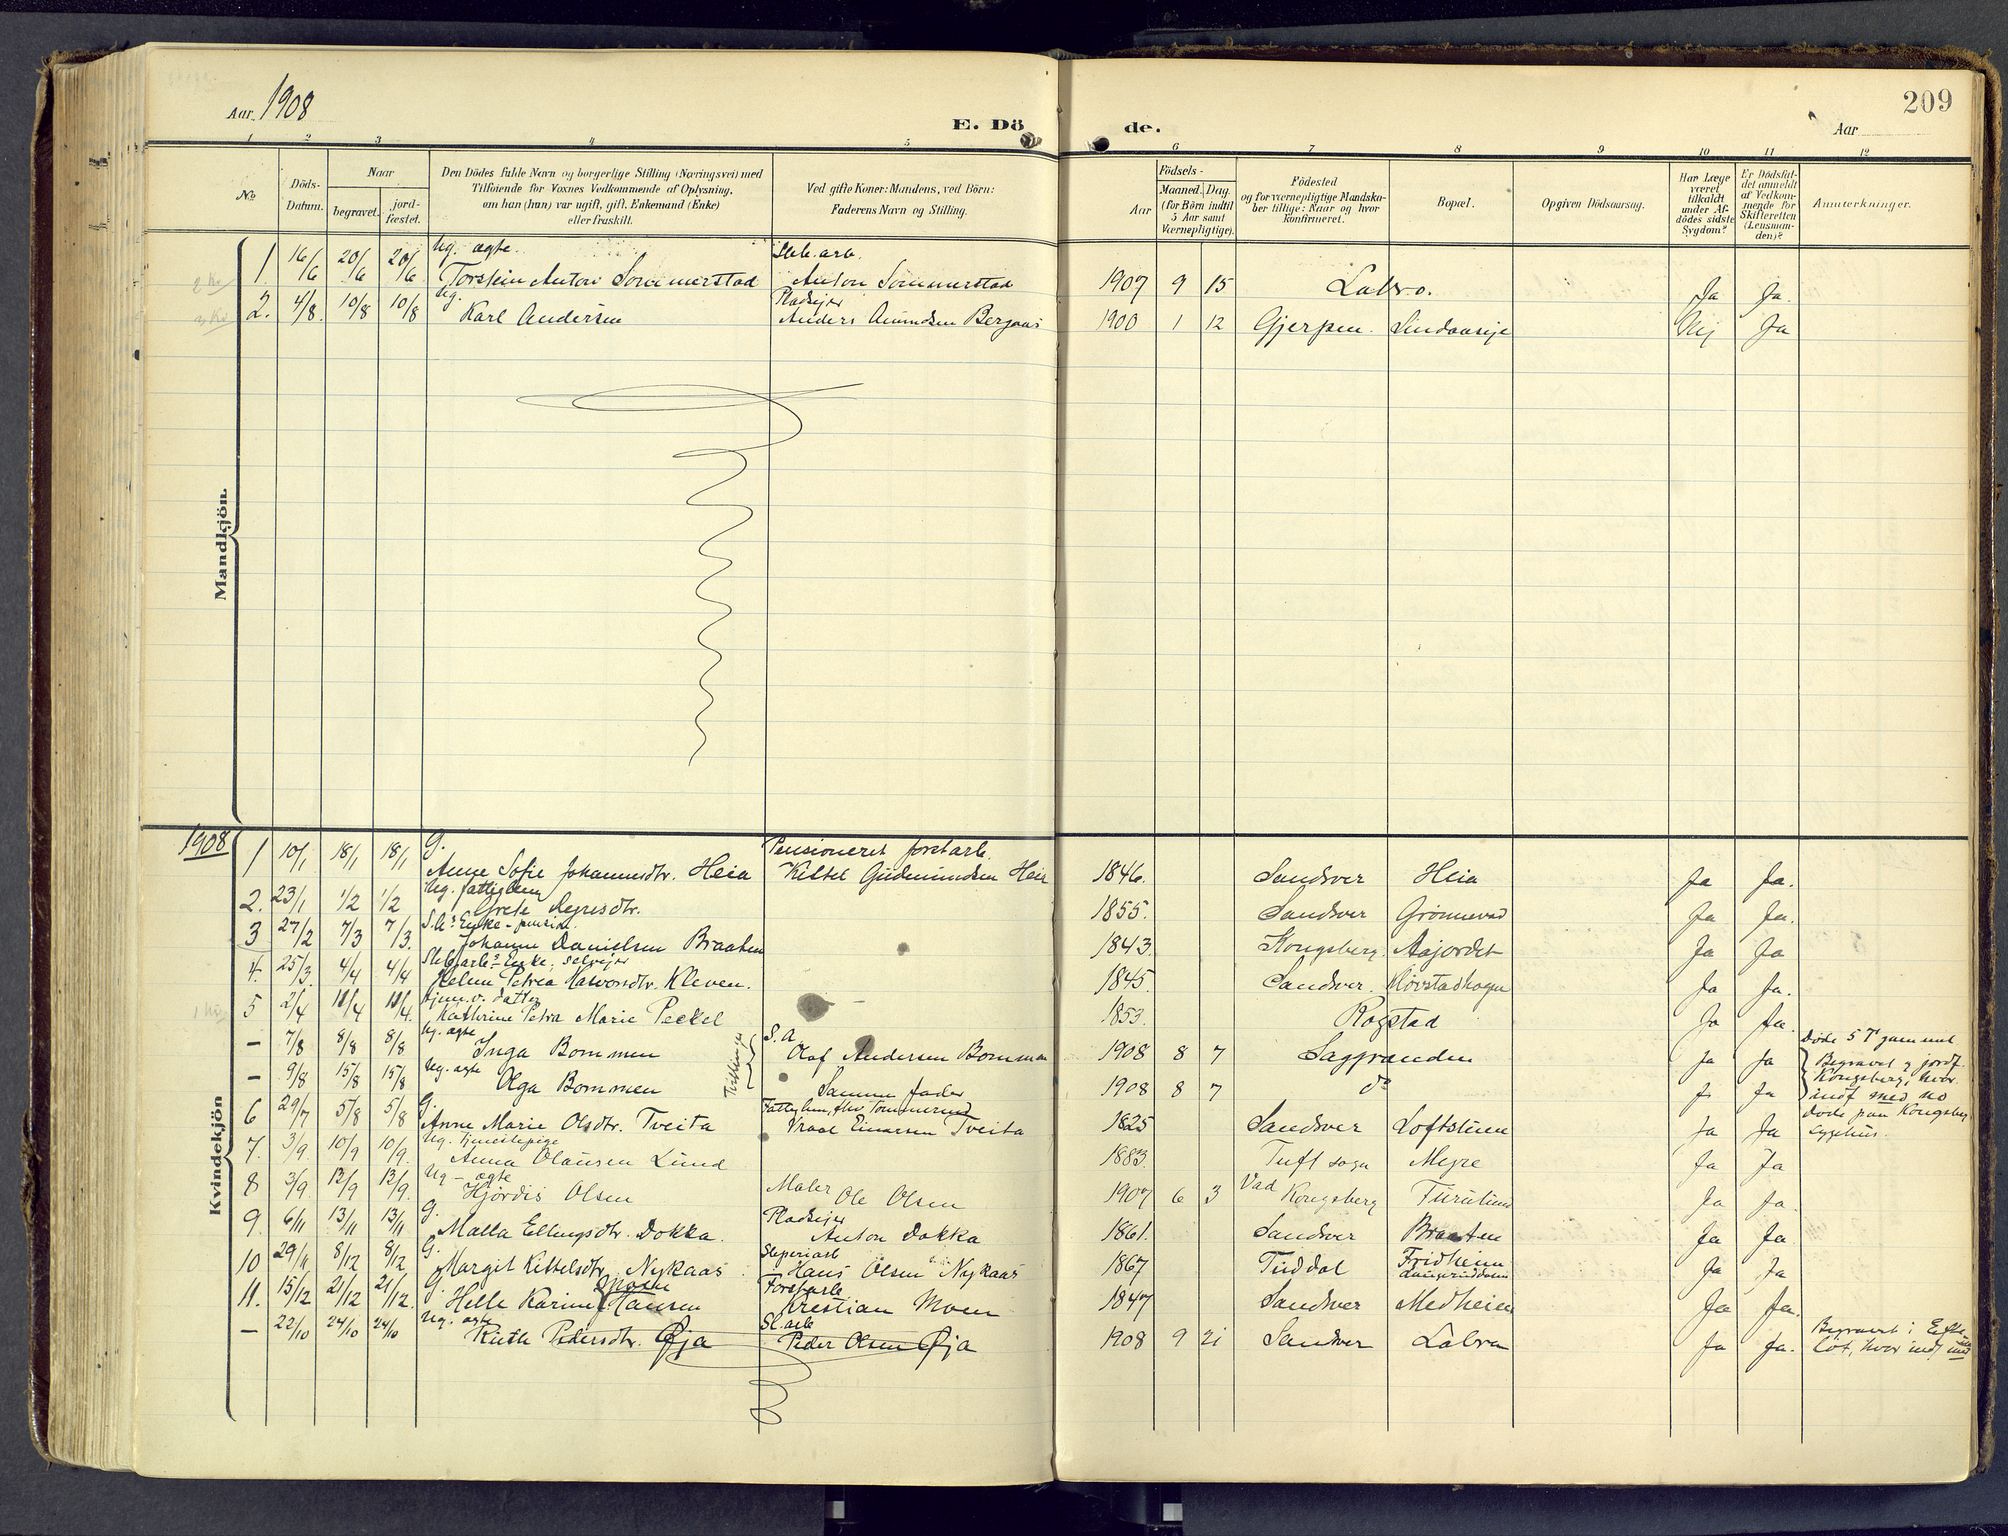 209
Aar 1908
E. Dö de.
Aar
1 2 3 4 5 6 7 8 9 10 11 12
No
Döds-Datum.
Naar
begravet.
jord-fæstet.
Den Dödes fulde Navn og borgerlige Stilling (Næringsvei) med
Tilföiende for Voxnes Vedkommende af Oplysning,
om han (hun) var ugift, gift, Enkemand (Enke)
eller fraskilt.
Ved gifte Koner: Mandens, ved Börn:
Faderens Navn og Stilling.
Födsels-
Aar
Maaned. Dag.
(for Börn indtil
5 Aar samt
Værnepligtige).
Födested
og for værnepligtige Mandska-
ber tillige: Naar og hvor
konfirmeret.
Bopæl.
Opgiven Dödsaarsag.
Har Læge
været
tilkaldt
under Af-
dödes sidste
Sygdom?
Er Dödsfal-
det anmeldt
af Vedkom-
mende for
Skifteretten
(Lensman-
den)?
Anmærkninger.
Mandkjön.
Ug. ægte. Slib.arb.
1 16/6 20/6 20/6 Torstein Anton Sommerstad Anton Sommerstad 1907 9 15 Labro. Ja Ja.
Ug. Pladsejer
2. 4/8. 10/8 10/8 Karl Andersen Anders Amundsen Bergaas 1900 1 12 Gjerpen Lindaaseje Nej Ja
Kvindekjön
1908
G. Pensioneret forstarb.
1 10/1 18/1 18/1 Anne Sofie Johannesdtr. Heia Kittel Gudmundsen Heia 1846. Sandsver Heia Ja Ja.
Ug. fattiglem
2. 23/1 1/2 1/2 Grete 1855. Sandsver Grönnevad Ja Ja.
Enke - pension.
3 27/2 7/3 7/3. Johanne Danielsen Braaten 1843. Kongsberg Aasjordet Ja Ja
Enke; selvejer
4. 25/3. 4/4 4/4 Helene Petrea Halvorsdtr. Kleven. 1845. Sandsver Hövstadhagen Ja Ja.
datter
5 2/4 11/4 11/4. Kathrine Petra Marie Peckel 1853. Rogstad Ja Ja.
Ug. ægte S. A
- 7/8 8/8 8/8 Inga Bommen Olaf Andersen Bommen 1908 8 7 Saggranden Ja Ja
Ug. ægte Tvillinger
- 9/8 15/8 15/8 Olga Bommen Samme fader 1908 8 7 do Ja Ja
Döde 5 T gammel
Begravet & jordf.
Kongsberg, hvor
indf med no
G. Fattiglem, fhv Tömmermd
6 29/7 5/8 5/8 Anne Marie Olsdtr. Tveita Einarsen Tveita 1825 Sandsver Loftstuen Ja Ja
döde paa Kongsberg
sygehus.
Ug. tjenestepige
7. 3/9. 10/9 10/9. Anna Olausen Lund 1883. Tuft sogn Myre Ja Ja
Ug - ægte Maler
8 3/9. 12/9 12/9. Hjördis Olsen Ole Olsen 1907 6 3 Vad Kongsberg Furulund Ja Ja.
G. Pladsejer
9. 6/11 13/11 13/11 Malla Ellingsdtr. Dokka. Anton Dokka 1861. Sandsver Braaten Ja Ja.
G. Sliperiarb
10 29/11 8/12 8/12 Margit Kittelsdtr. Nykaas Hans Olsen Nykaas 1867 Tuddal Fridheim Ja Ja
G. Moen Forstarb.
11. 15/12 21/12 21/12. Helle Karine Hansen Kristian Moen 1847 Sandsver Medheien Ja Ja.
Ug. ægte Sl.arb
- 22/10 24/10 24/10 Ruth Pedersdtr. Øja Peder Olsen Øja 1908 9 21 Sandsver Labro Ja Ja.
Begravet i Efte-
löt, hvor indf